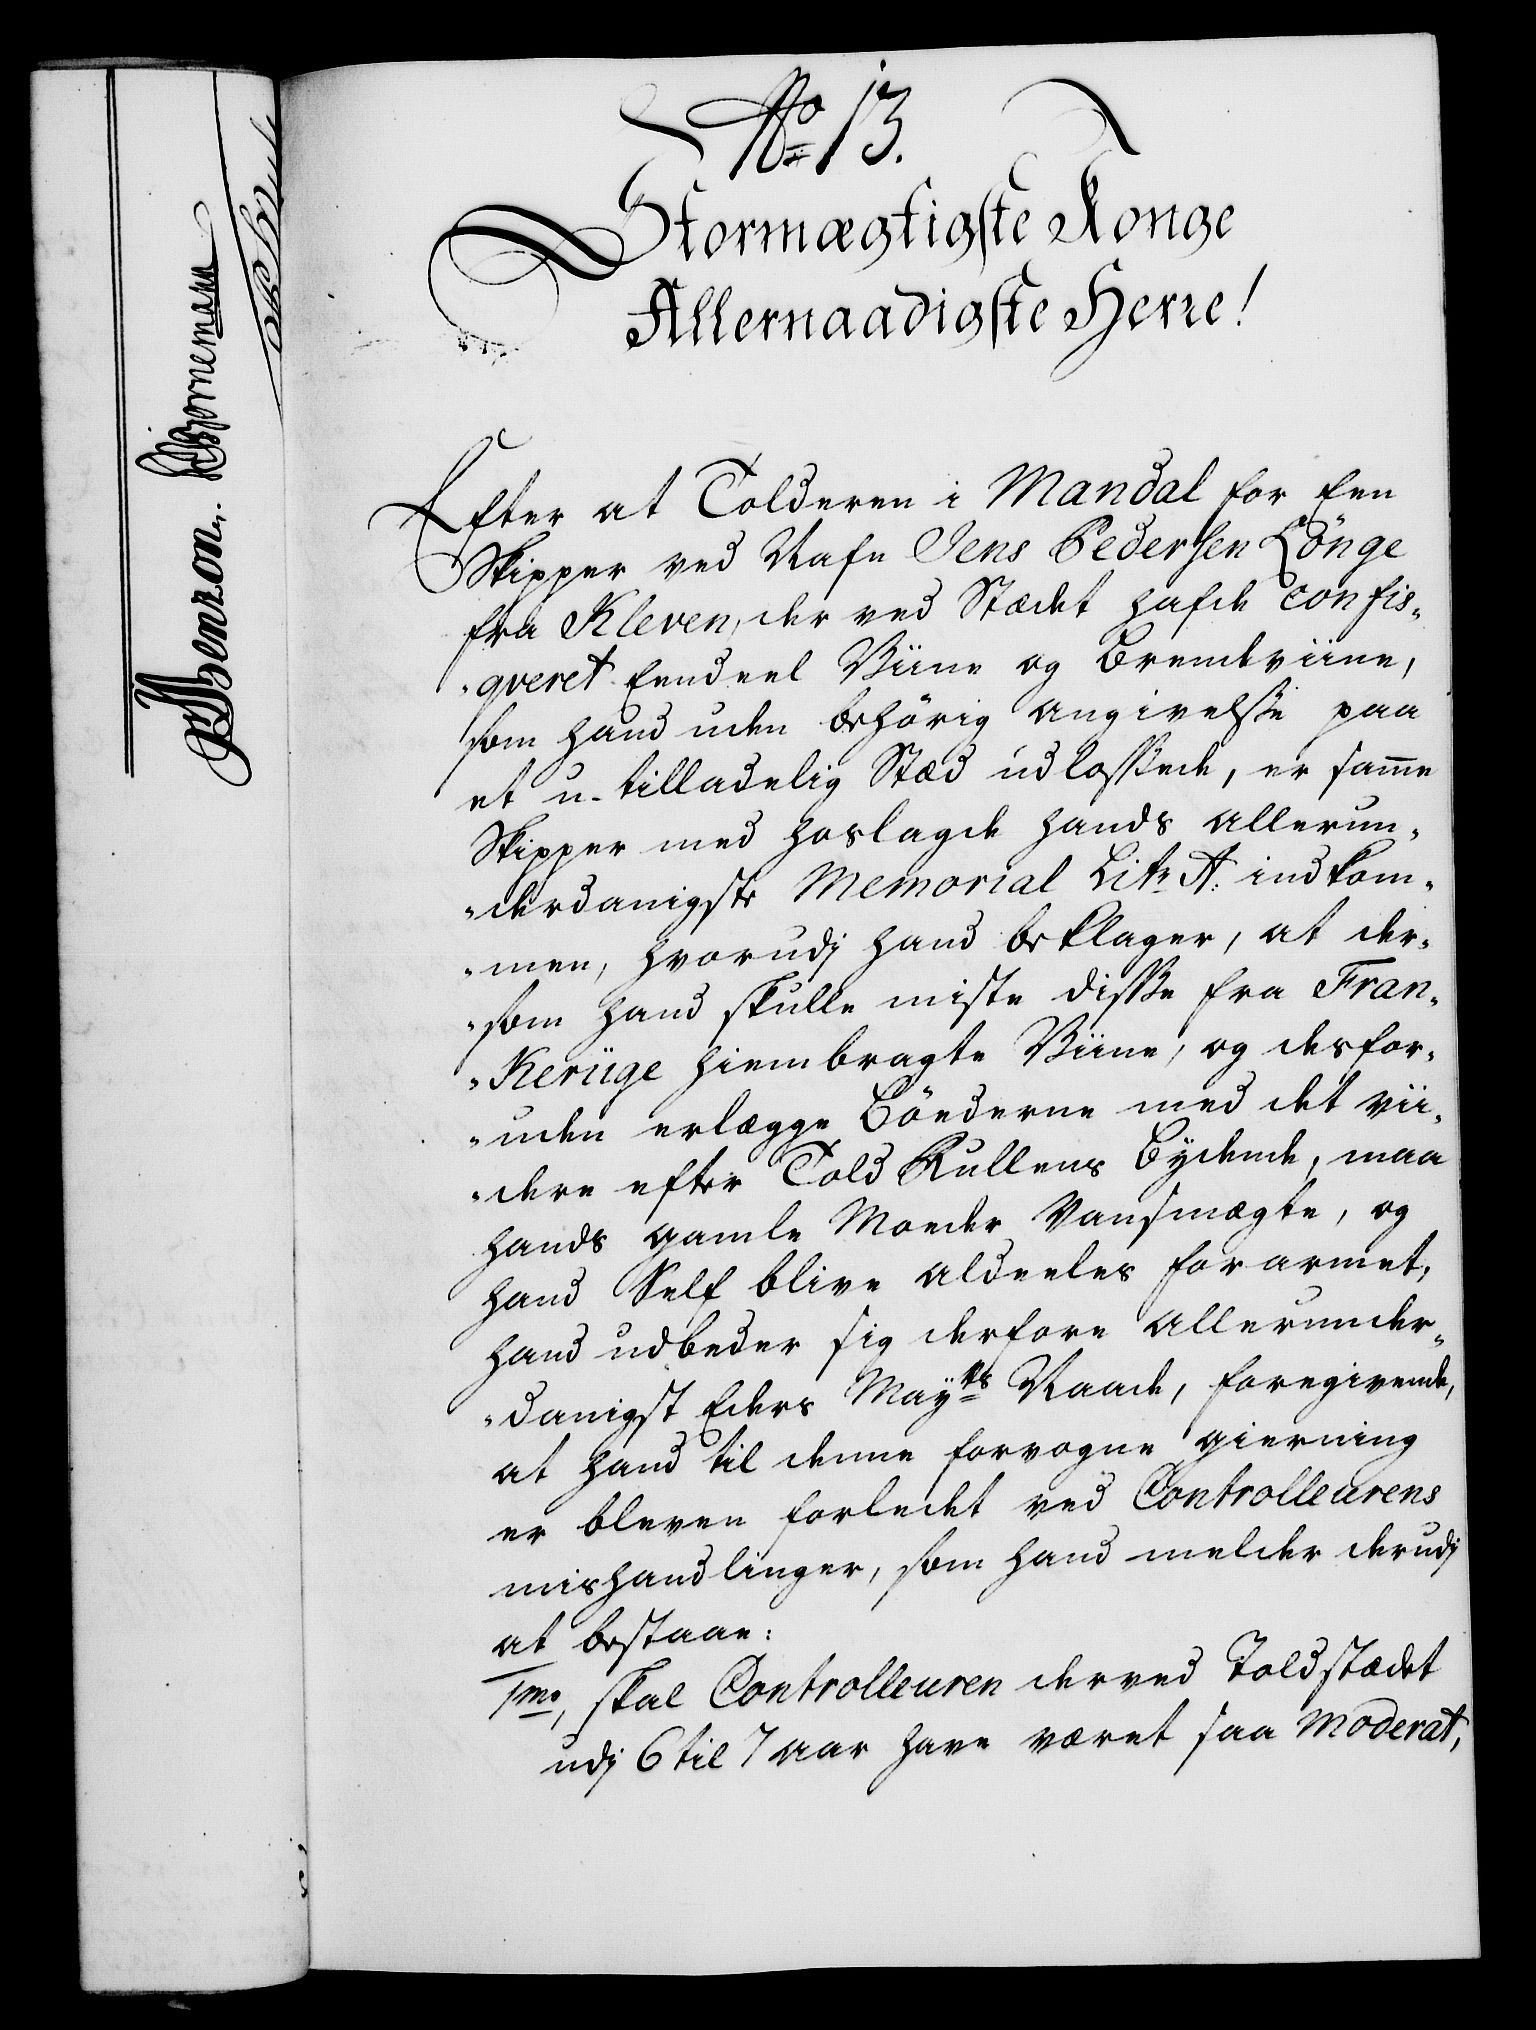 No 13.
Stormægtigste Konge
Allernaadigste Herre!
Efter at Tolderen i Mandal for Een
Skipper ved Nafn Jens Pedersen Lönge
fra Kleven, der ved Stædet hafde confis„
„qveret Eendeel Viine og Brendeviine,
som hand uden behörig angivelsse paa
et u-tilladelig Stæd udlossede, er samme
Skipper med hoslagde hands allerun„
„derdanigste Memorial Litr A. indkom„
„men, hvorudj hand beklager, at der„
„som hand skulle miste disse fra Fran„
„Kerüge hiembragte Viine, og desfor„
„uden erlægge Böederne med det vii„
„dere efter Told Rullens Bydende, maa
hands gamle Moeder Vansmægte, og
hand Self blive aldeeles forarmet,
hand udbeder sig derfore allerunder„
„danigst Eders Mayts Naade, foregivende,
at hand til denne forvogne gierning
er bleven forledet ved Controlleurens
mishandlinger, som hand melder derudj
at bestaae:
1mo, skal Controlleuren derved Toldstædet
udj 6 til 7 aar have været saa Moderat,
Benzon. Bornemann